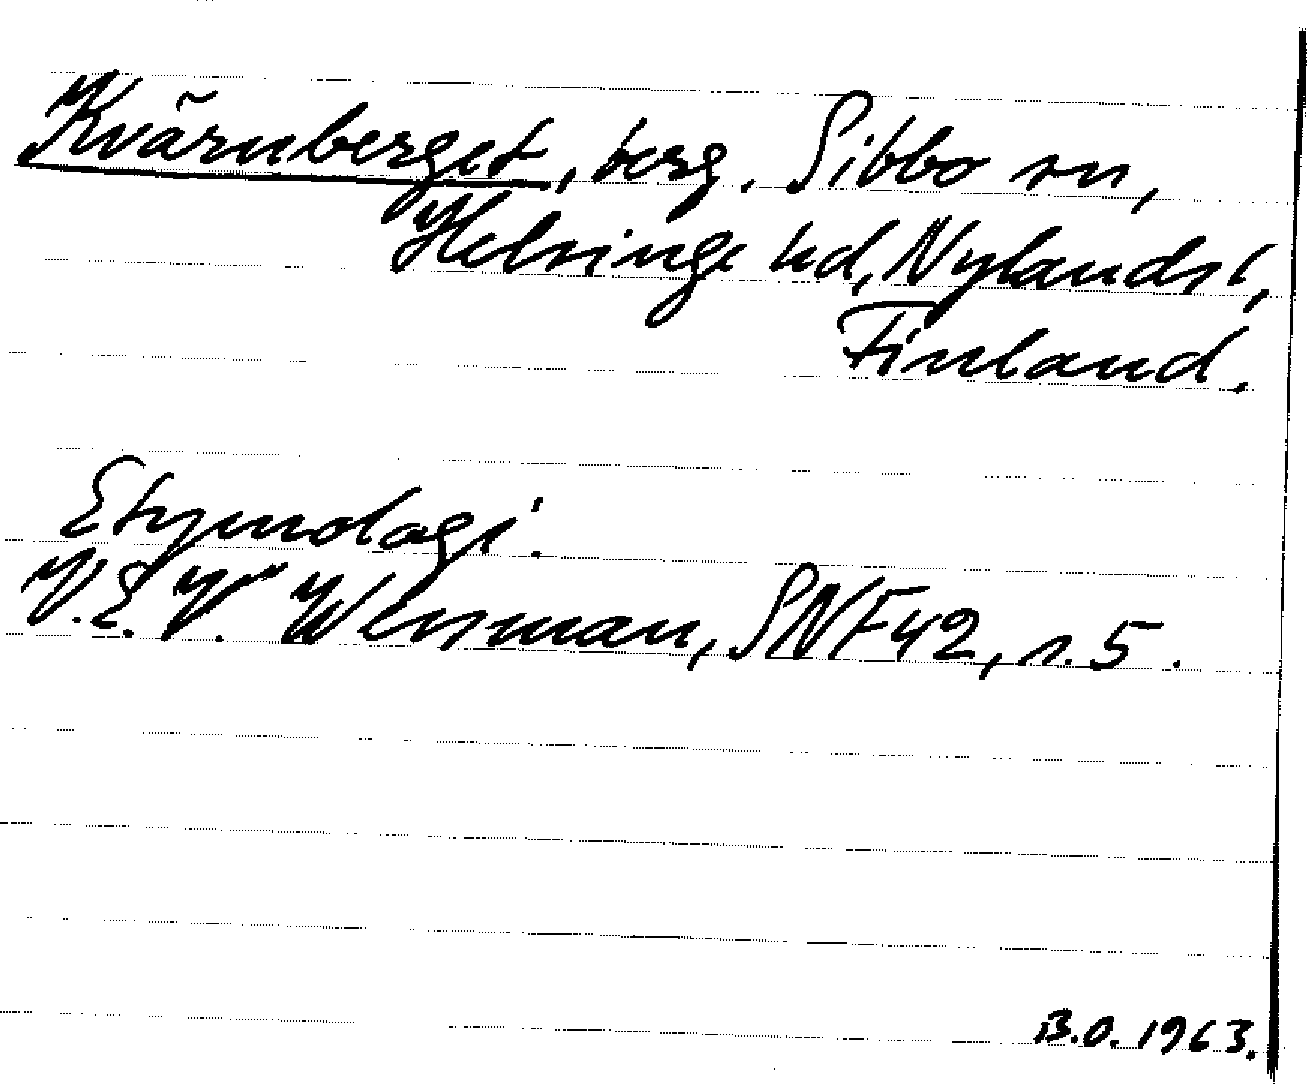 Kvärnberget, berg. Sibbo sn,
Helsinge hd, Nylands l,
Finland.
Etymologi:
V.E.V. Wessman, SNF 42, s. 5.
B.O. 1963.